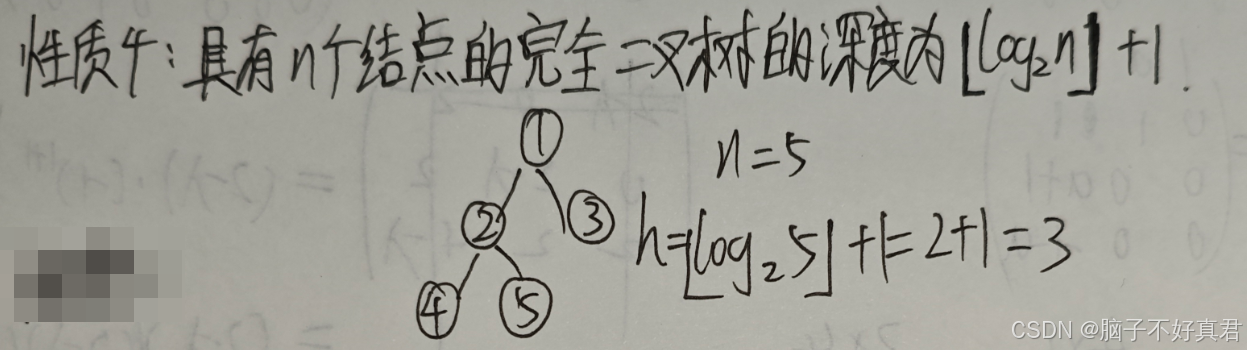 性质4：具有n个结点的完全二叉树的深度为⌊log₂n⌋+1.
①
n=5
② ③
h=⌊log₂5⌋+1=2+1=3
④ ⑤
CSDN @脑子不好真君